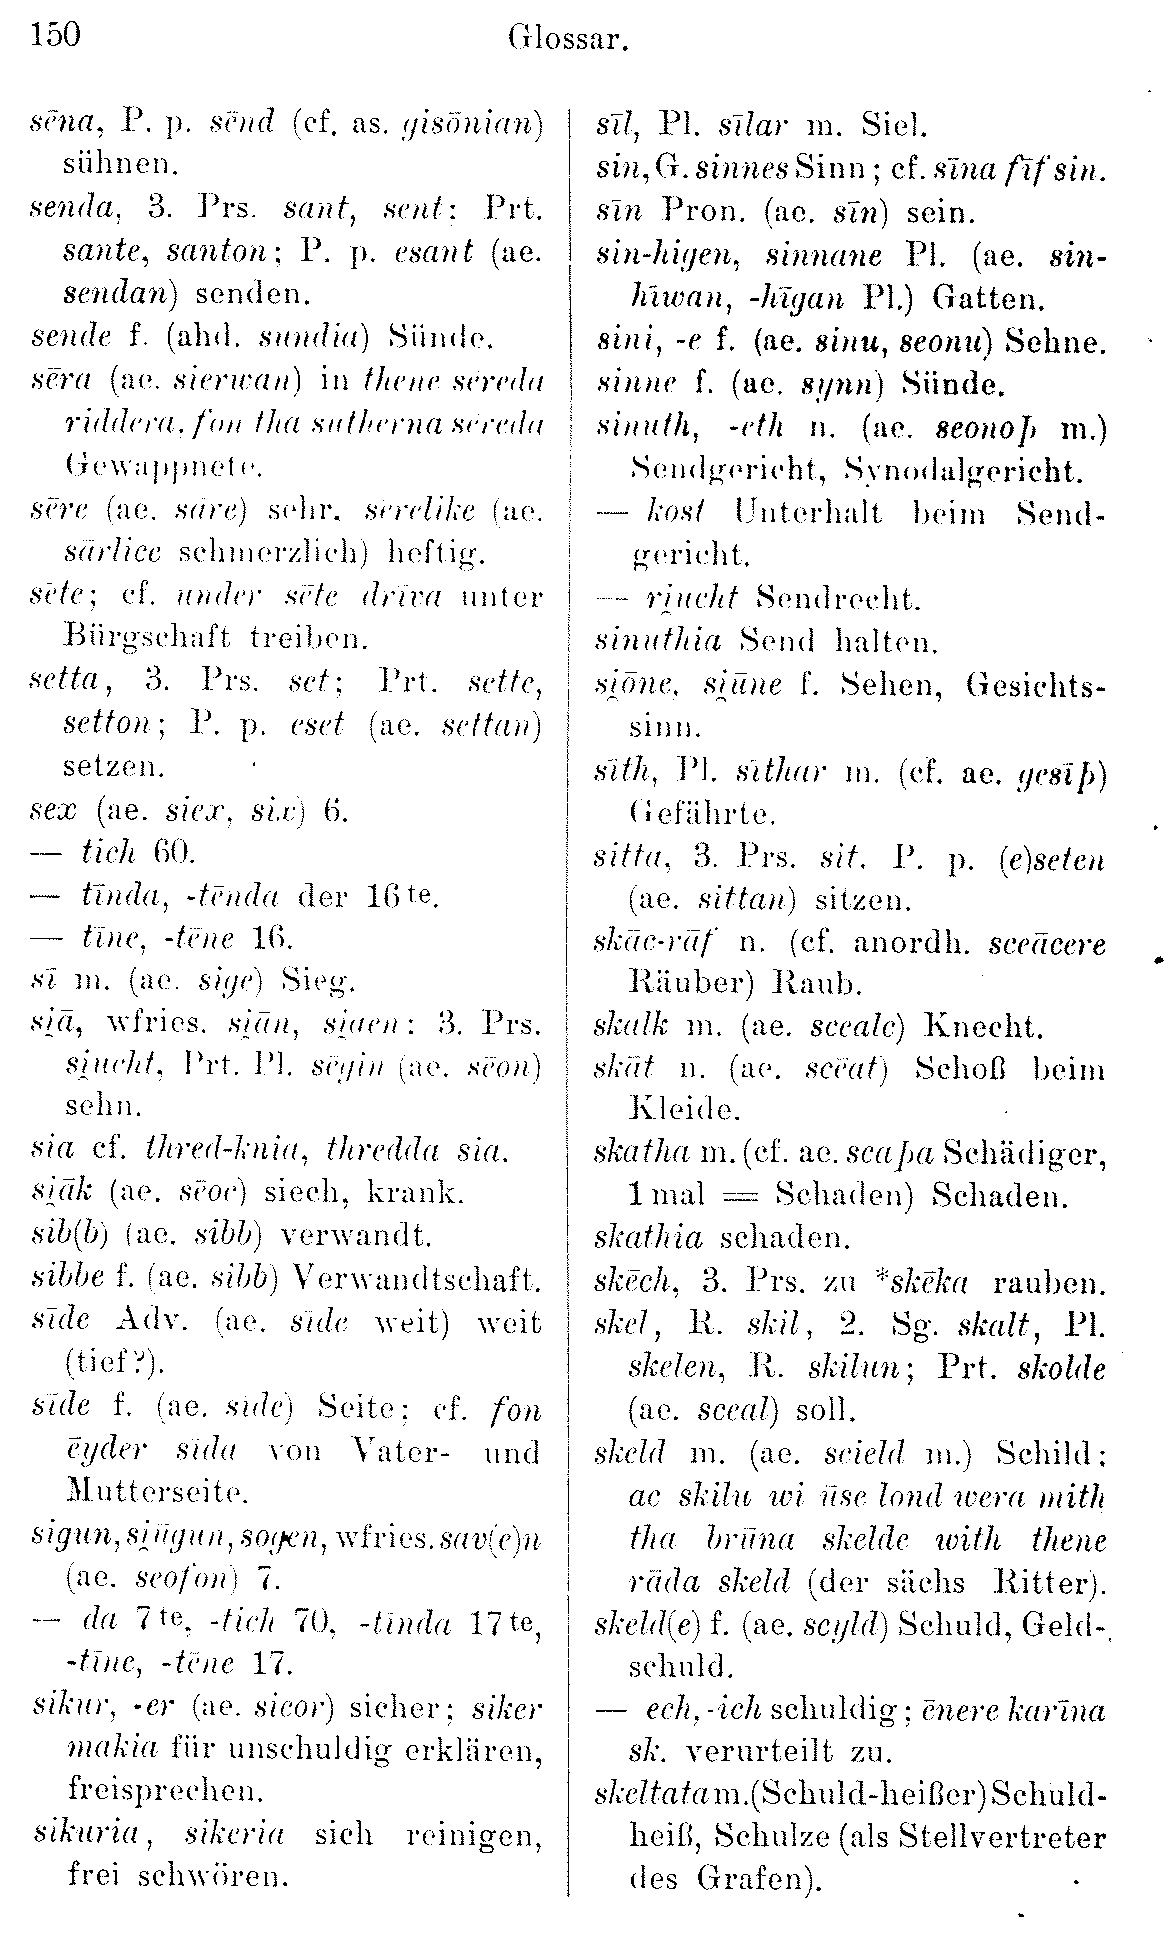 150 Glossar.
sēna, P. p. sēnd (cf. as. gisōnian)
sühnen.
senda, 3. Prs. sant, sent: Prt.
sante, santon; P. p. esant (ae.
sendan) senden.
sende f. (ahd. sundia) Sünde.
sēra (ae. sierwan) in thene sereda
riddera, fon tha sutherna sereda
Gewappnete.
sēre (ae. sāre) sehr. serelike (ae.
sārlice schmerzlich) heftig.
sēte; cf. under sēte drīva unter
Bürgschaft treiben.
setta, 3. Prs. set; Prt. sette,
setton; P. p. eset (ae. settan)
setzen.
sex (ae. siex, six) 6.
— tich 60.
— tīnda, -tēnda der 16te.
— tīne, -tēne 16.
sī m. (ae. sige) Sieg.
si̯ā, wfries. si̯ān, si̯aen: 3. Prs.
si̯ucht, Prt. Pl. sēgin (ae. sēon)
sehn.
sia cf. thred-knia, thredda sia.
si̯āk (ae. sēoc) siech, krank.
sib(b) (ae. sibb) verwandt.
sibbe f. (ae. sibb) Verwandtschaft.
sīde Adv. (ae. sīde weit) weit
(tief?).
sīde f. (ae. sīde) Seite; cf. fon
ēyder sīda von Vater- und
Mutterseite.
sigun, si̯ūgun, sogen, wfries. sav(e)n
(ae. seofon) 7.
— da 7te, -tich 70, -tīnda 17te,
-tīne, -tēne 17.
sikur, -er (ae. sicor) sicher; siker
makia für unschuldig erklären,
freisprechen.
sikuria, sikeria sich reinigen,
frei schwören.
sīl, Pl. sīlar m. Siel.
sin, G. sinnes Sinn; cf. sīna fīf sin.
sīn Pron. (ae. sīn) sein.
sin-higen, sinnane Pl. (ae. sin-
hīwan, -hīgan Pl.) Gatten.
sini, -e f. (ae. sinu, seonu) Sehne.
sinne f. (ae. synn) Sünde.
sinuth, -eth n. (ae. seonoþ m.)
Sendgericht, Synodalgericht.
— kost Unterhalt beim Send-
gericht.
— ri̯ucht Sendrecht.
sinuthia Send halten.
si̯ōne, si̯ūne f. Sehen, Gesichts-
sinn.
sīth, Pl. sīthar m. (cf. ae. gesīþ)
Gefährte.
sitta, 3. Prs. sit, P. p. (e)seten
(ae. sittan) sitzen.
skāc-rāf n. (cf. anordh. sceācere
Räuber) Raub.
skalk m. (ae. scealc) Knecht.
skāt n. (ae. scēat) Schoß beim
Kleide.
skatha m. (cf. ae. scaþa Schädiger,
1 mal = Schaden) Schaden.
skathia schaden.
skēch, 3. Prs. zu *skēka rauben.
skel, R. skil, 2. Sg. skalt, Pl.
skelen, R. skilun; Prt. skolde
(ae. sceal) soll.
skeld m. (ae. scield m.) Schild;
ac skilu wi ūse lond wera mith
tha brūna skelde with thene
rāda skeld (der sächs Ritter).
skeld(e) f. (ae. scyld) Schuld, Geld-
schuld.
— ech, -ich schuldig; ēnere karīna
sk. verurteilt zu.
skeltata m. (Schuld-heißer) Schuld-
heiß, Schulze (als Stellvertreter
des Grafen).